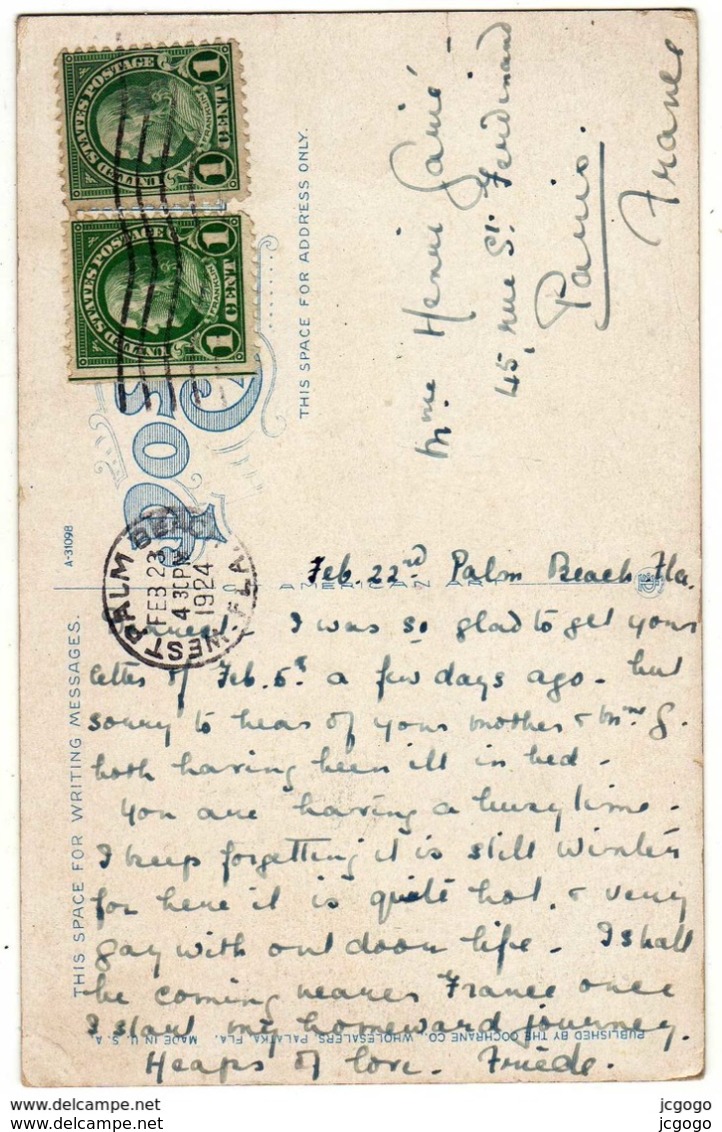 UNITED STATES POSTAGE
1 1
FRANKLIN
CENT
UNITED STATES POSTAGE
1 1
FRANKLIN
CENT
POST
THIS SPACE FOR ADDRESS ONLY.
Mme Henri
45, rue St. Ferdinand
Paris.
France
A-31098
WEST PALM BEACH
FEB 23
4 30 PM
1924
FLA.
AMERICAN ART
THIS SPACE FOR WRITING MESSAGES.
Feb. 22nd Palm Beach Fla.
I was so glad to get your
letter of Feb. 5th a few days ago - but
sorry to hear of your mother & Mme G.
both having been ill in bed -
You are having a busy time -
I keep forgetting it is still Winter
for here it is quite hot, & very
gay with outdoor life - I shall
be coming nearer France once
I start my homeward journey.
Heaps of love - Friede.
PUBLISHED BY THE COCHRANE CO., WHOLESALERS, PALATKA, FLA. MADE IN U. S. A.
www.delcampe.net
www.delcampe.net
jcgogo
jcgogo